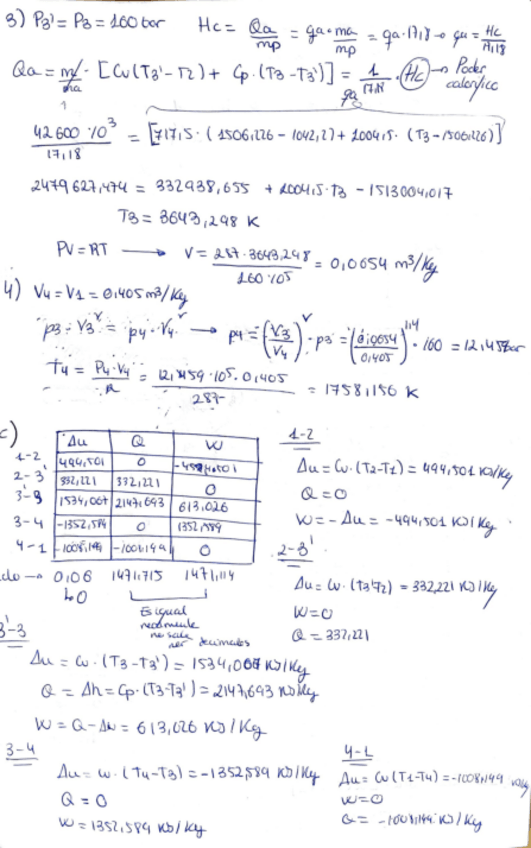 3) P3' = P3 = 160 bar   Hc = Qa/mp = qa·ma/mp = qa·17,18 → qa = Hc/17,18
Qa = m/ma · [Cv(T3'-T2) + Cp·(T3-T3')] = 1/17,18 · (Hc) → Poder calorífico
1   qa
42600·10³/17,18 = [717,5·(1506,226 - 1042,2) + 1004,5·(T3-1506,226)]
2479627,474 = 332938,655 + 1004,5·T3 - 1513004,017
T3 = 3643,298 K
PV = RT → V = 287·3643,298/160·10⁵ = 0,0654 m³/kg
4) V4 = V1 = 0,405 m³/kg
p3·V3^γ = p4·V4^γ → p4 = (V3/V4)^γ · p3 = (0,0654/0,405)^1,4 · 160 = 12,459 bar
T4 = P4·V4/R = 12,459·10⁵·0,405/287 = 1758,156 K
c)
Δu   Q   W
1-2   494,501   0   -494,501
2-3'   332,221   332,221   0
3'-3   1534,067   2147,693   613,026
3-4   -1352,589   0   1352,589
4-1   -1008,199   -1008,199   0
clo → 0,06   1471,715   1471,114
↳0   Es igual
no sale
decimales
1-2
Δu = Cv·(T2-T1) = 494,501 kJ/kg
Q = 0
W = -Δu = -494,501 kJ/kg
2-3'
Δu = Cv·(T3'-T2) = 332,221 kJ/kg
W = 0
Q = 332,221
3'-3
Δu = Cv·(T3-T3') = 1534,067 kJ/kg
Q = Δh = Cp·(T3-T3') = 2147,693 kJ/kg
W = Q-Δu = 613,026 kJ/kg
3-4
Δu = Cv·(T4-T3) = -1352,589 kJ/kg
Q = 0
W = 1352,589 kJ/kg
4-1
Δu = Cv(T1-T4) = -1008,199 kJ/kg
W = 0
Q = -1008,199 kJ/kg